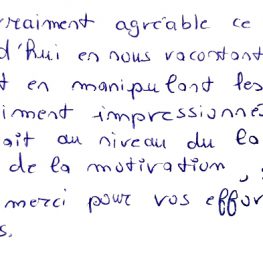 vraiment agréable ce
d'hui en nous racontant
t en manipulant les
iment impressionnés
ait au niveau du la
de la motivation,
merci pour vos effor
s.